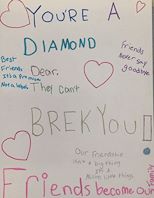 YOU'RE A
DIAMOND
Best
Friends
It's a Promise
Not a label
Friends
Never say
goodbye
Dear,
They Can't
BREK YOU!
Our Friendship
isn't a big thing
It's a
Million little things
Friends become our
Family